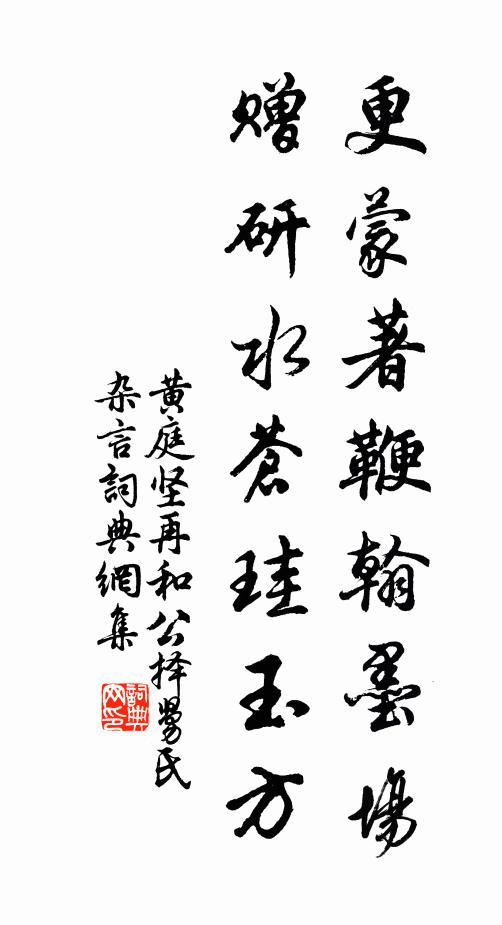 更蒙著鞭翰墨場
贈研水蒼珪玉方
黄庭坚再和公择舅氏
杂言詞典網集
詞典
网印